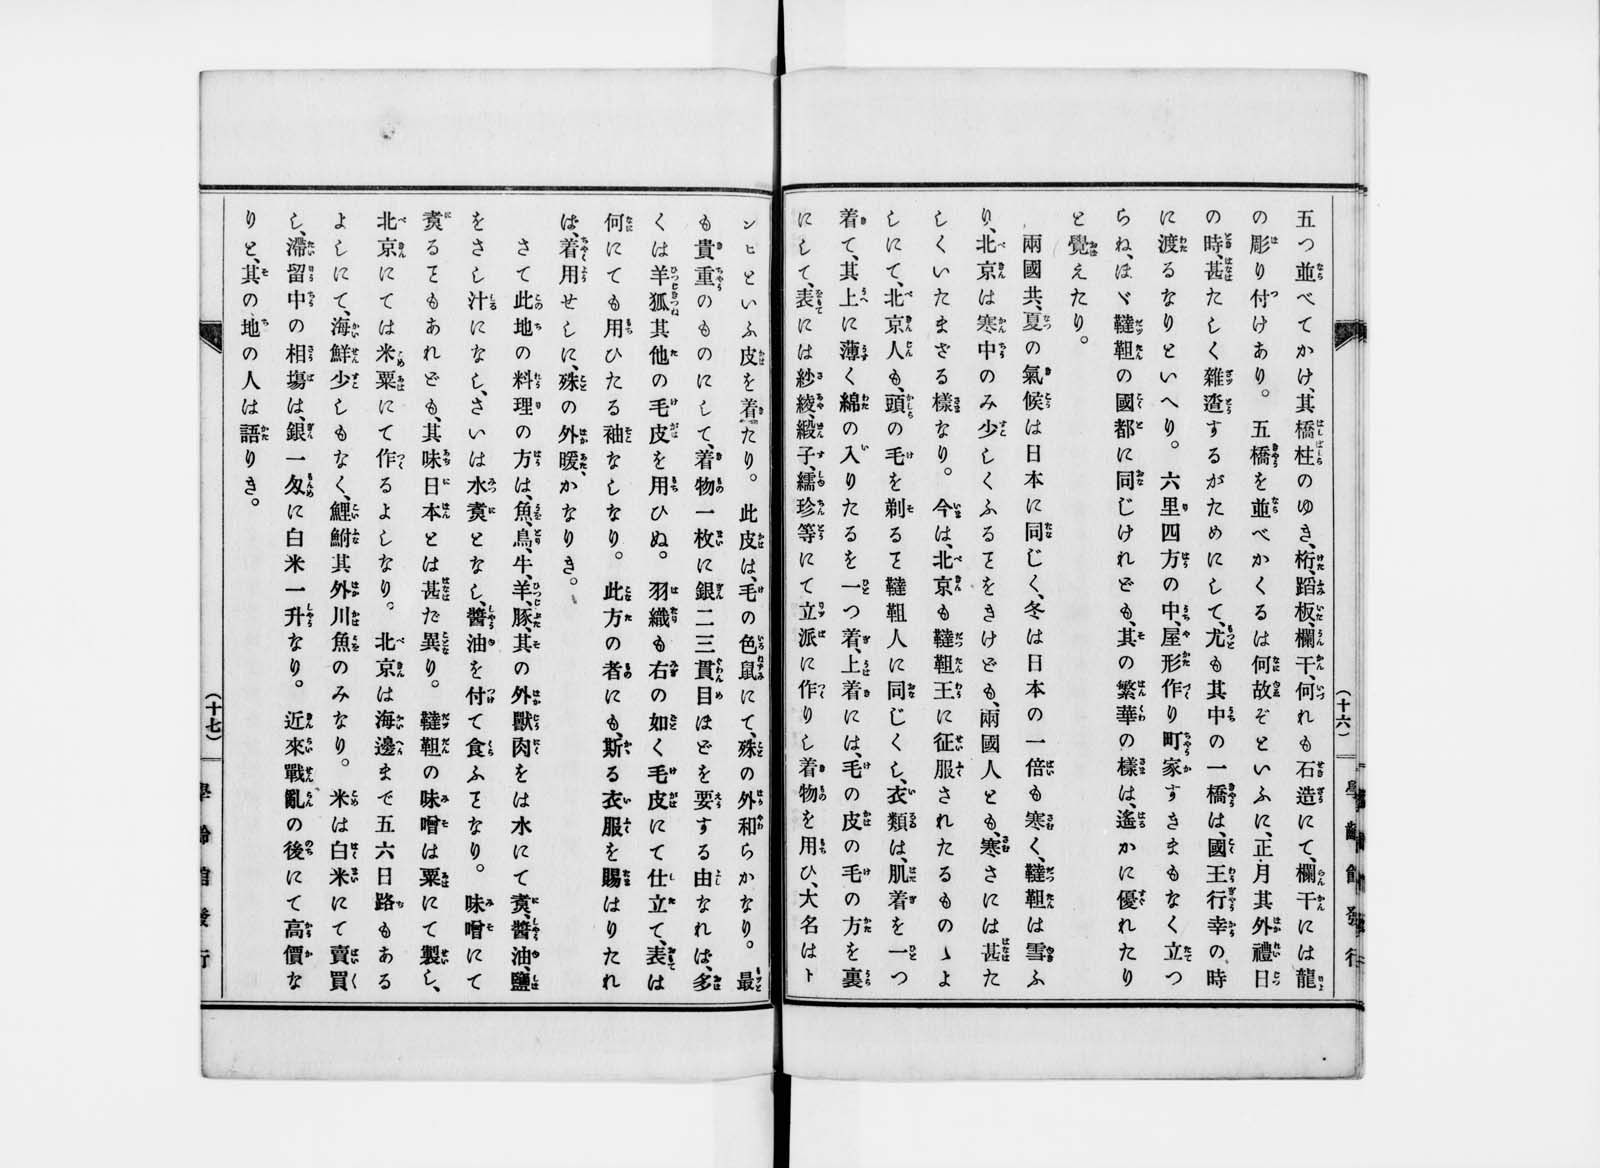 五つ並べてかけ、其橋柱のゆき、桁、蹈板、欄干、何れも石造にて、欄干には龍
の彫り付けあり。五橋を並べかくるは何故ぞといふに、正月其外禮日
の時、甚たしく雜遝するがためにして、尤も其中の一橋は、國王行幸の時
に渡るなりといへり。六里四方の中、屋形作り町家すきまもなく立つ
らね、ほゞ韃靼の國都に同じけれども、其の繁華の樣は、遙かに優れたり
と覺えたり。
兩國共、夏の氣候は日本に同じく、冬は日本の一倍も寒く、韃靼は雪ふ
り、北京は寒中のみ少しくふるヿをきけども、兩國人とも、寒さには甚た
しくいたまさる樣なり。今は、北京も韃靼王に征服されたるものゝよ
しにて、北京人も、頭の毛を剃るヿ韃靼人に同じくし、衣類は、肌着を一つ
着て、其上に薄く綿の入りたるを一つ着、上着には、毛の皮の毛の方を裏
にして、表には紗綾、緞子、繻珍等にて立派に作りし着物を用ひ、大名はト
(十六)
學齡館發行
ンヒといふ皮を着たり。此皮は、毛の色鼠にて、殊の外和らかなり。最
も貴重のものにして、着物一枚に銀二三貫目ほどを要する由なれは、多
くは羊狐其他の毛皮を用ひぬ。羽織も右の如く毛皮にて仕立て、表は
何にても用ひたる袖なしなり。此方の者にも、斯る衣服を賜はりたれ
ば、着用せしに、殊の外暖、かなりき。
さて此地の料理の方は、魚、鳥、牛、羊、豚、其の外獸肉をは水にて煑、醬油、鹽
をさし汁になし、さいは水煑となし、醬油を付て食ふヿなり。味噌にて
煑るヿもあれども、其味日本とは甚た異り。韃靼の味噌は粟にて製し、
北京にては米粟にて作るよしなり。北京は海邊まで五六日路もある
よしにて、海鮮少しもなく、鯉鮒其外川魚のみなり。米は白米にて賣買
し、滯留中の相塲は、銀一匁に白米一升なり。近來戰亂の後にて高價な
りと、其の地の人は語りき。
(十七)
學齡館發行